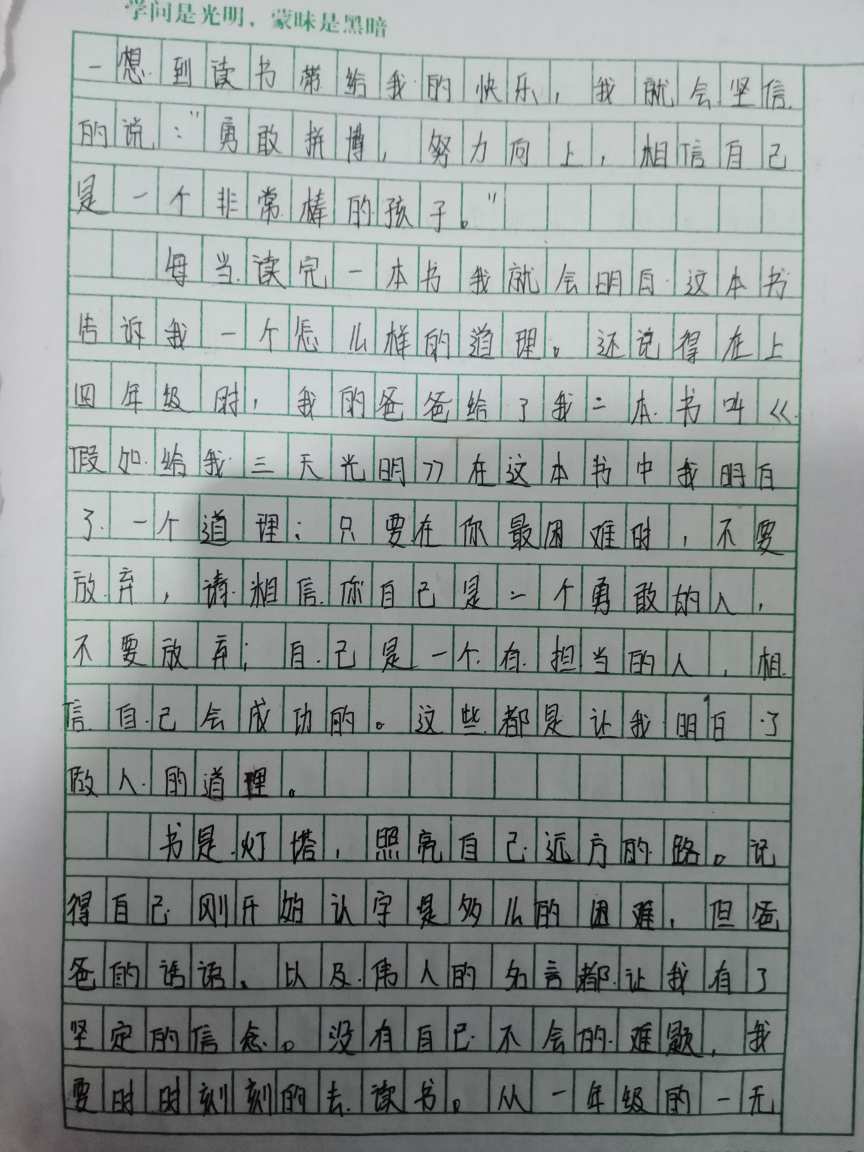 学问是光明，蒙昧是黑暗
一想到读书带给我的快乐，我就会坚信
的说："勇敢拼博，努力向上，相信自己
是一个非常棒的孩子。"
每当读完一本书我就会明白这本书
告诉我一个怎么样的道理。还记得在上
四年级时，我的爸爸给了我一本书叫《
假如给我三天光明》在这本书中我明白
了一个道理：只要在你最困难时，不要
放弃，请相信你自己是一个勇敢的人，
不要放弃；自己是一个有担当的人，相
信自己会成功的。这些都是让我明白了
做人的道理。
书是灯塔，照亮自己远方的路。记
得自己刚开始认字是多么的困难，但爸
爸的话语、以及伟人的名言都让我有了
坚定的信念。没有自己不会的难题，我
要时时刻刻的去读书。从一年级的一无